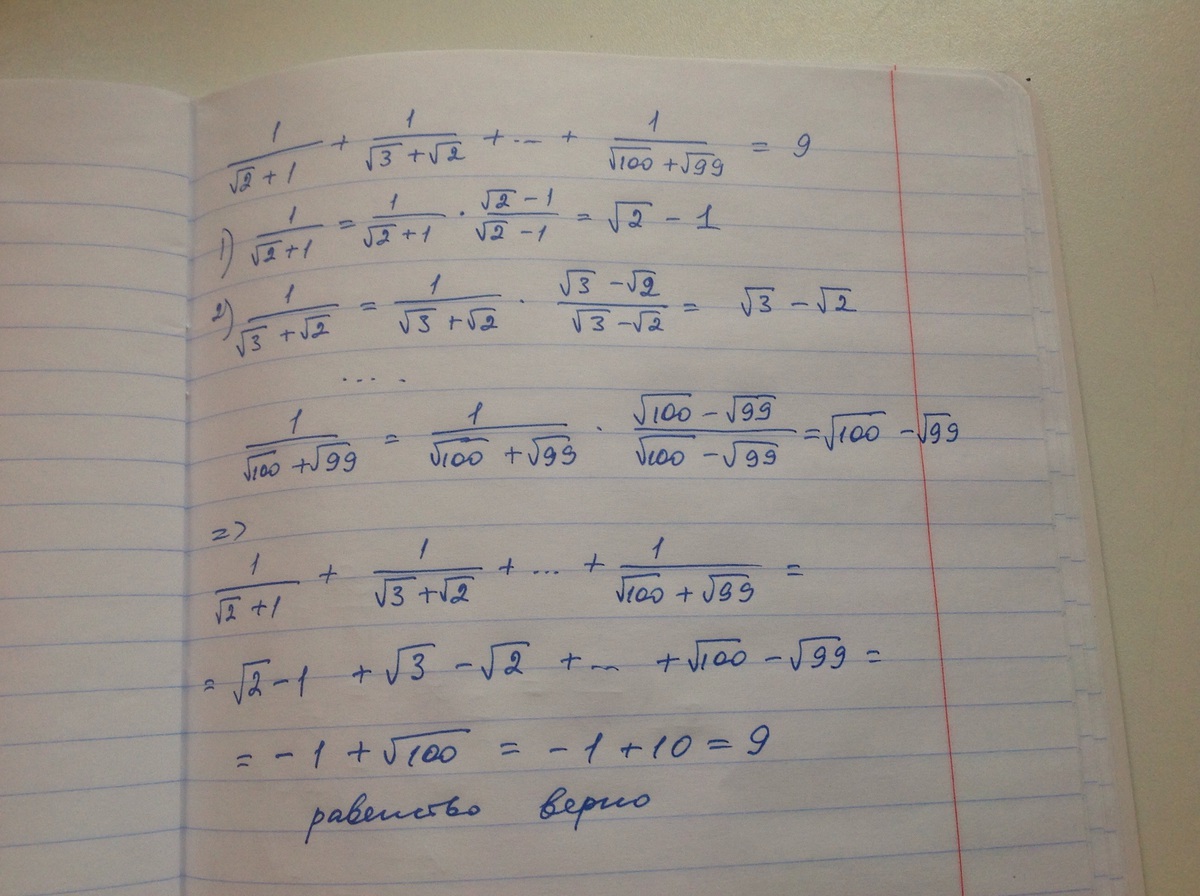 1/(√2 + 1) + 1/(√3 + √2) + ... + 1/(√100 + √99) = 9
1) 1/(√2 + 1) = 1/(√2 + 1) · (√2 - 1)/(√2 - 1) = √2 - 1
2) 1/(√3 + √2) = 1/(√3 + √2) · (√3 - √2)/(√3 - √2) = √3 - √2
.....
1/(√100 + √99) = 1/(√100 + √99) · (√100 - √99)/(√100 - √99) = √100 - √99
=>
1/(√2 + 1) + 1/(√3 + √2) + ... + 1/(√100 + √99) =
= √2 - 1 + √3 - √2 + ... + √100 - √99 =
= - 1 + √100 = - 1 + 10 = 9
равенство верно